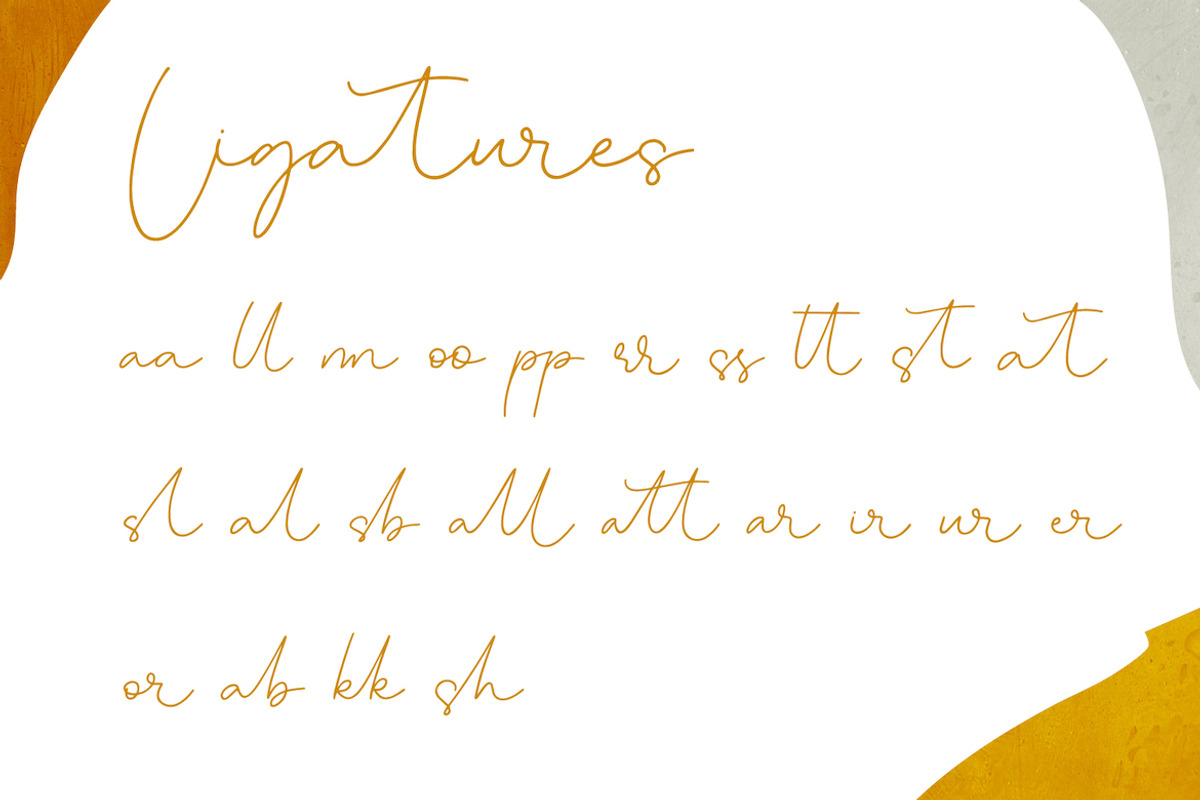 Ligatures
aa ll nn oo pp rr ss tt st at
sl al sb all att ar ir ur er
or ab kk sh